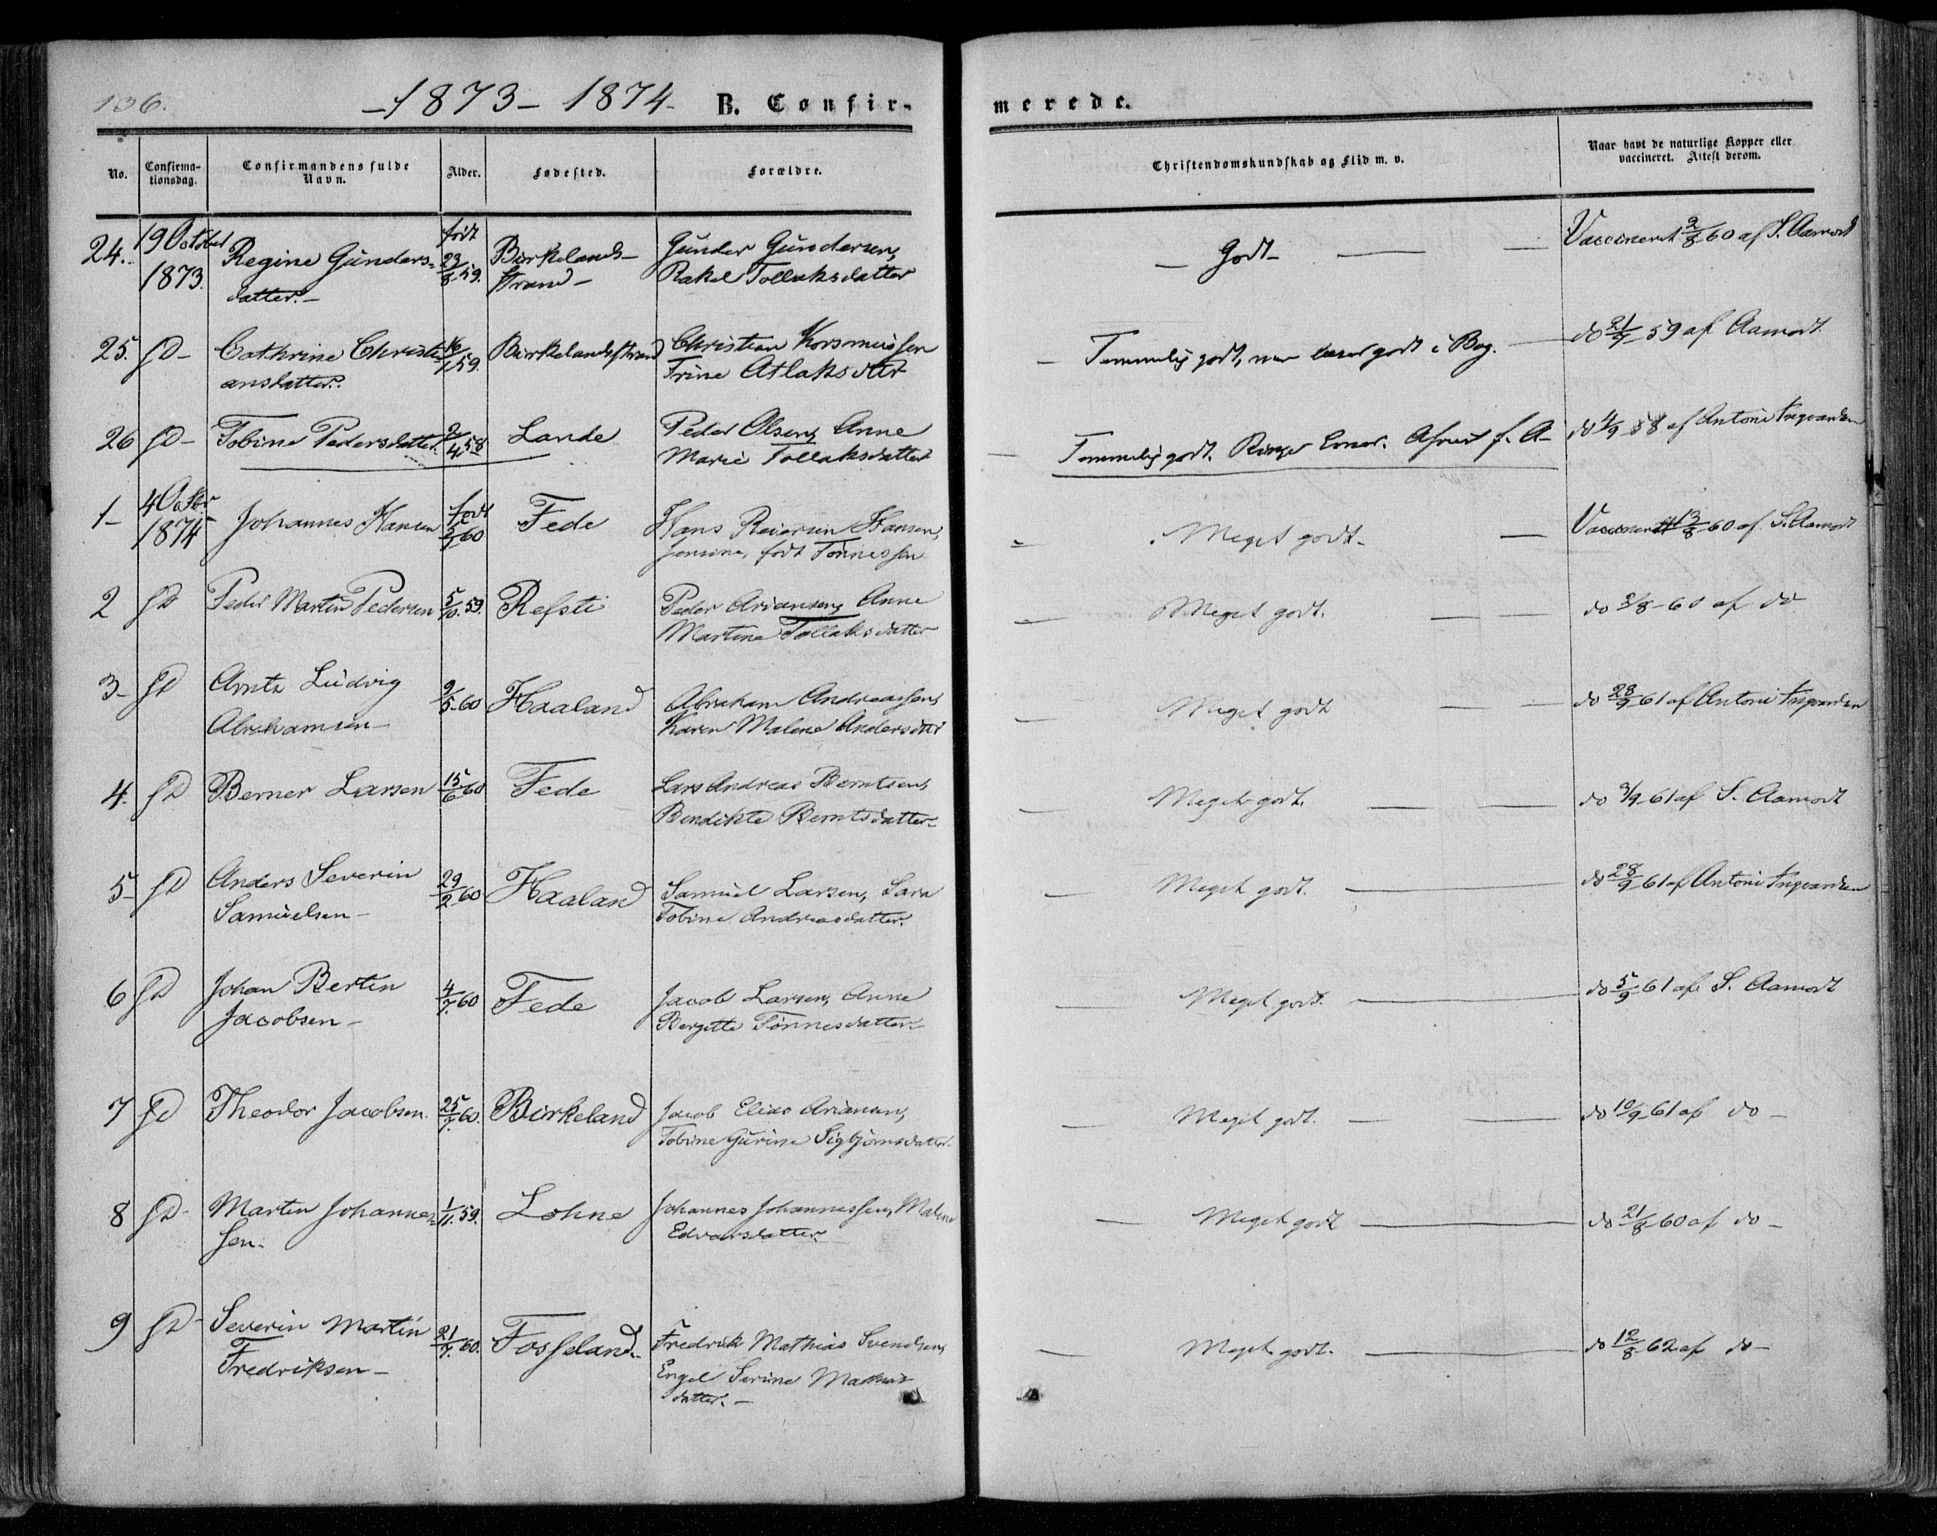 136.
-1873- 1874- B. Confir-
merede.
No.
Confirma-
tionsdag.
Confirmandens fulde
Navn.
Alder.
Fødested.
Forældre.
Christendomskundskab og Flid m. v.
Naar havt de naturlige Kopper eller
vaccineret. Attest derom.
24. 19 October Regine Gunders- født Birkelands- Gunder Gundersen, - Godt - Vaccineret 2/8 60 af S. Aamodt
1873. datter.- 23/8 59. strand- Rakel Tollaksdatter
25. Cathrine Christi- 16/1 59. Birkelandsstrand Christian Korsmussen - Temmelig godt, men læser godt i Bog. - do 21/9 59 af Aamodt
ansdatter. Trine Atlaksdtr
26 Tobine Pedersdatter. 2/4 58 Lande Peder Olsen, Anne - Temmelig godt. do 4/9 58 af Antoni Ingvardsen
Marie Tollaksdatter
1- 4 Octbr Johannes Hansen født Fede Hans Reiersen Hansen, Meget godt. - Vaccineret 13/8 60 af S. Aamodt
1874 60 Jensine, født Tønnessen
2 Peder Martin Pedersen 5/10. 59. Refsti Peder Ariansen, Anne - Meget godt. - do 2/8-60 af do
Martine Tollaksdatter
3- Arnts Ludvig 9/5-60 Haaland Abraham Andreassen, - Meget godt - do 28/9 61 af Antoni Ingvardsen
Abrahamsen- Karen Malene Andersdtr
4. Berner Larsen 15/6 60 Fede Lars Andreas Berntsen, - Meget godt. - do 3/9-61 af S. Aamodt
Bendikte Berntsdatter-
5- Anders Severin 29/2 60 Haaland Samuel Larsen, Sara - Meget godt. - do 28/9 61 af Antoni Ingvardsen
Samuelsen- Tobine Andreasdatter.
6 Johan Bertin 4/7 60 Fede Jacob Larsen, Anne - Meget godt. - do 5/9 61 af S. Aamodt
Jacobsen- Bergitte Tønnesdatter-
7 Theodor Jacobsen. 25/7. 60. Birkeland Jacob Elias Ariansen, - Meget godt. - do 10/9-61 af do-
Tobine Gurine Sigbjørnsdatter.
8 Martin Johannes- 1/11. 59. Lohne Johannes Johannessen, Malene - Meget godt - do 21/8 60 af do-
sen. Edvardsdatter.
9 Severin Martin 21/7. 60. Fosseland. Fredrik Mathias Svendsen, - Meget godt. - do 12/8 62 af do-
Fredriksen- Engel Serine
datter.-